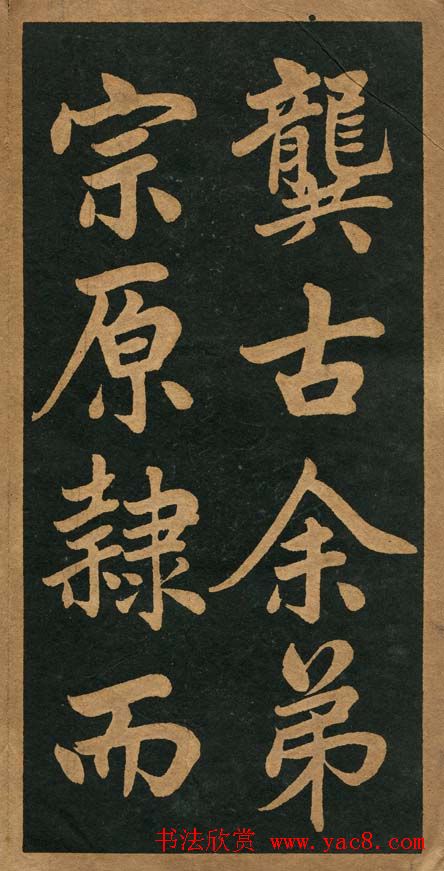 龔古余弟
宗原隸而
书法欣赏 www.yac8.com